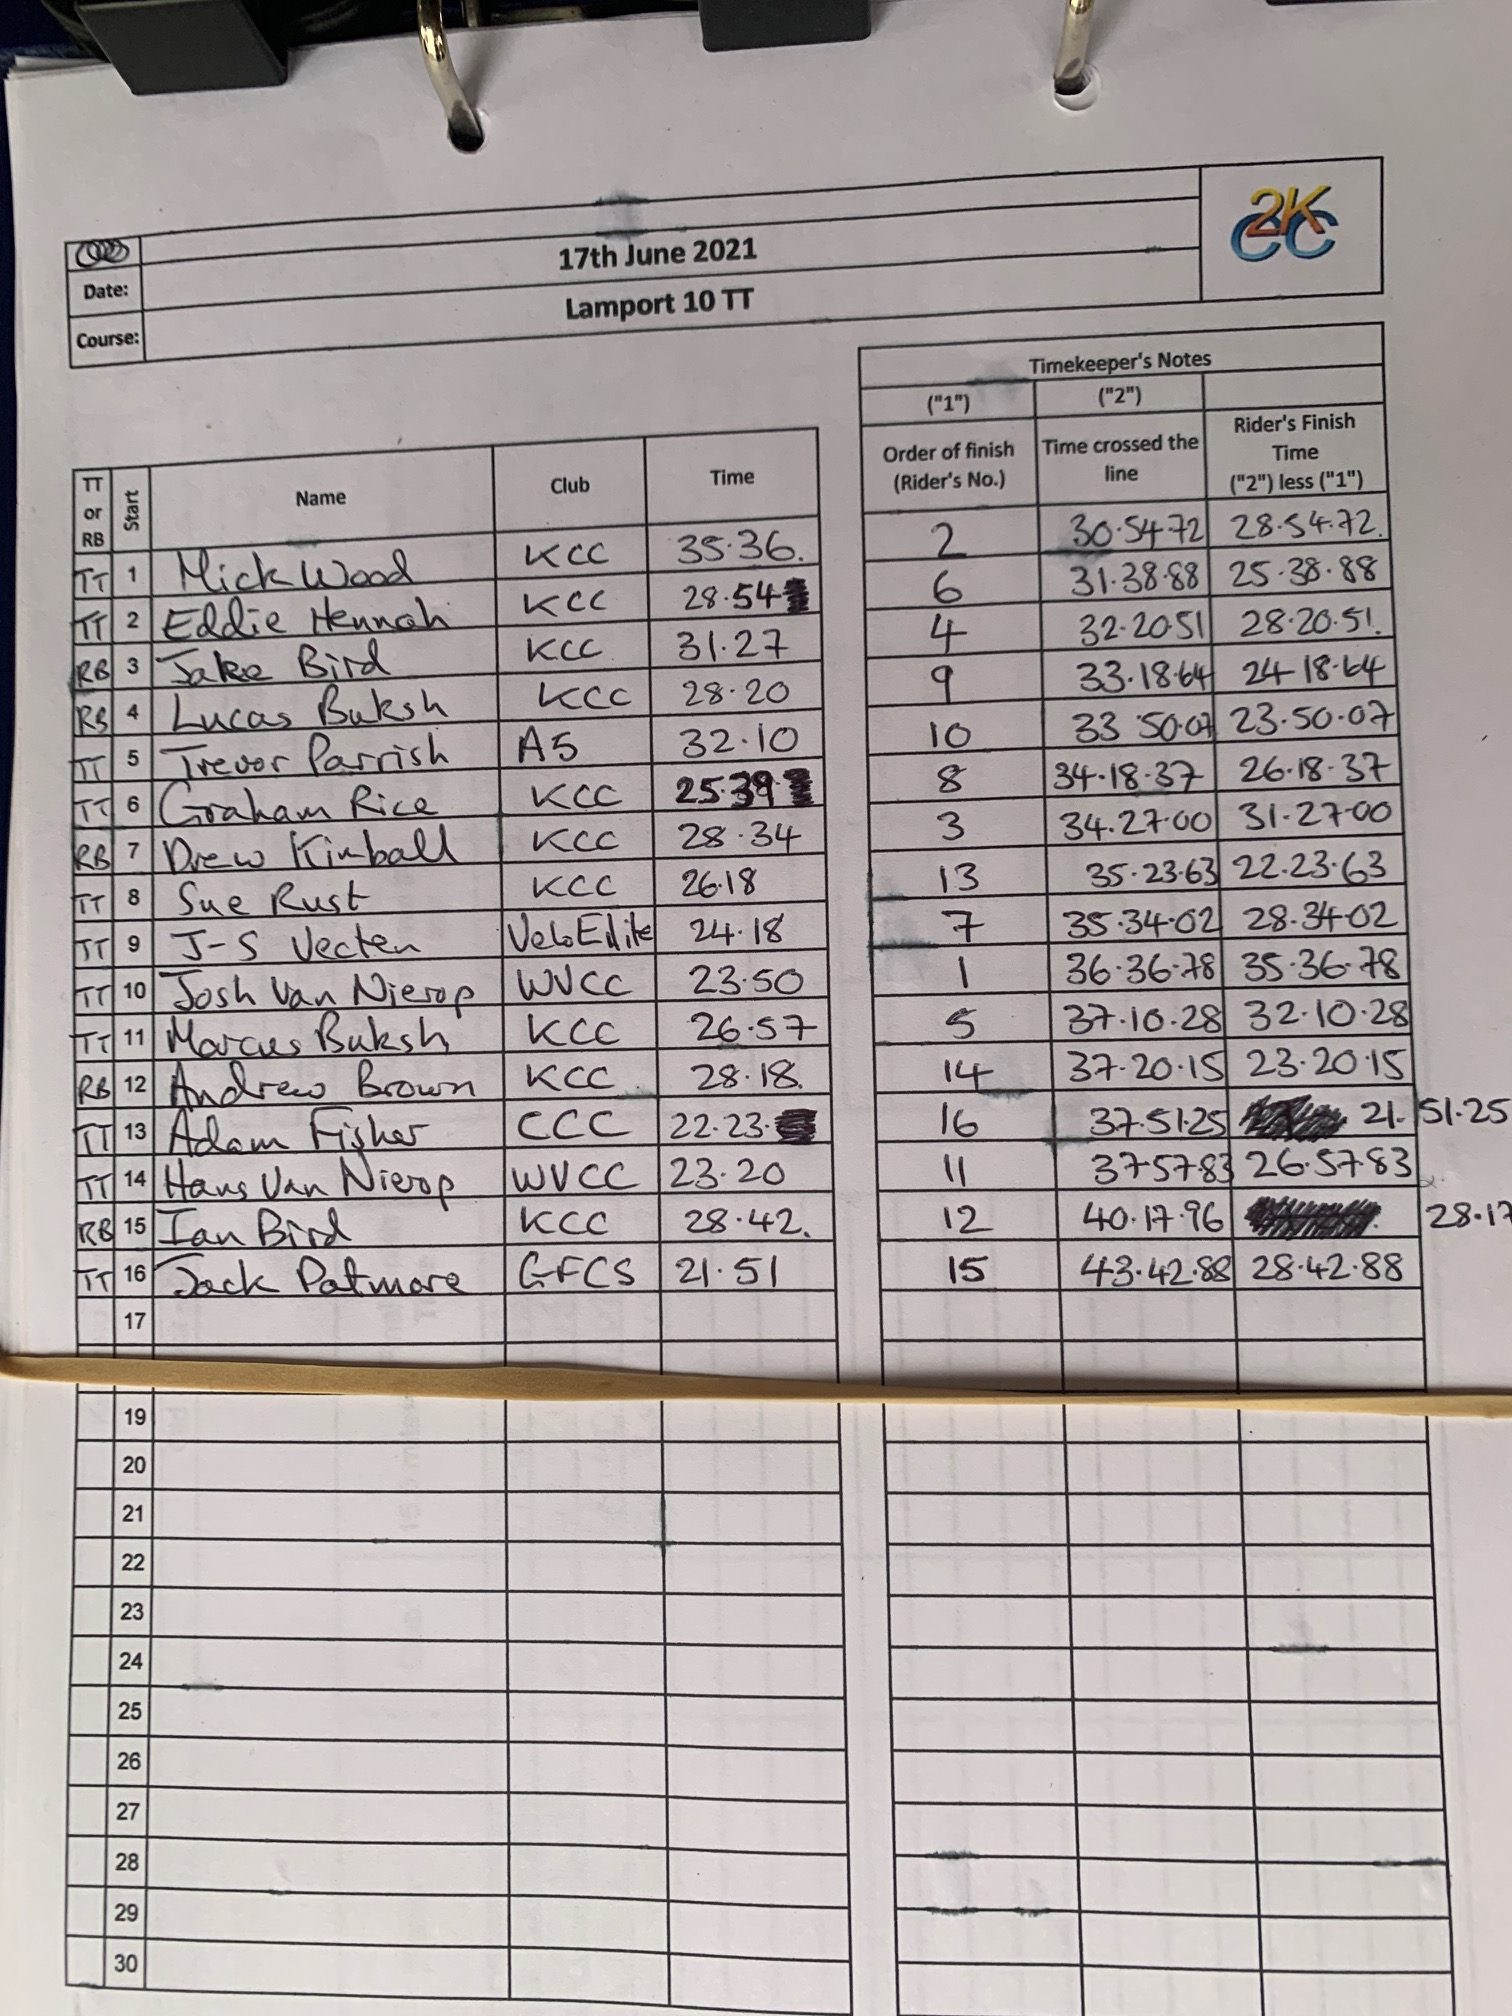 2K
CC
17th June 2021
Date:
Lamport 10 TT
Course:
Timekeeper's Notes
("1") ("2")
Order of finish (Rider's No.) Time crossed the line Rider's Finish Time ("2") less ("1")
TT or RB Start Name Club Time
TT 1 Mick Wood KCC 35.36.
TT 2 Eddie Hennah KCC 28.54
RB 3 Jake Bird KCC 31.27
RB 4 Lucas Buksh KCC 28.20
TT 5 Trevor Parrish A5 32.10
TT 6 Graham Rice KCC 25.39
RB 7 Drew Kimball KCC 28.34
TT 8 Sue Rust KCC 26.18
TT 9 J-S Vecten VeloElite 24.18
TT 10 Josh Van Nierop WVCC 23.50
TT 11 Marcus Buksh KCC 26.57
RB 12 Andrew Brown KCC 28.18.
TT 13 Adam Fisher CCC 22.23.
TT 14 Hans Van Nierop WVCC 23.20
RB 15 Ian Bird KCC 28.42.
TT 16 Jack Patmore GFCS 21.51
17
19
20
21
22
23
24
25
26
27
28
29
30
2 30.54.72 28.54.72.
6 31.38.88 25.38.88
4 32.20.51 28.20.51.
9 33.18.64 24.18.64
10 33 50.07 23.50.07
8 34.18.37 26.18.37
3 34.27.00 31.27.00
13 35.23.63 22.23.63
7 35.34.02 28.34.02
1 36.36.78 35.36.78
5 37.10.28 32.10.28
14 37.20.15 23.20.15
16 37.51.25 21.51.25
11 37.57.83 26.57.83
12 40.17.96 28.17
15 43.42.88 28.42.88